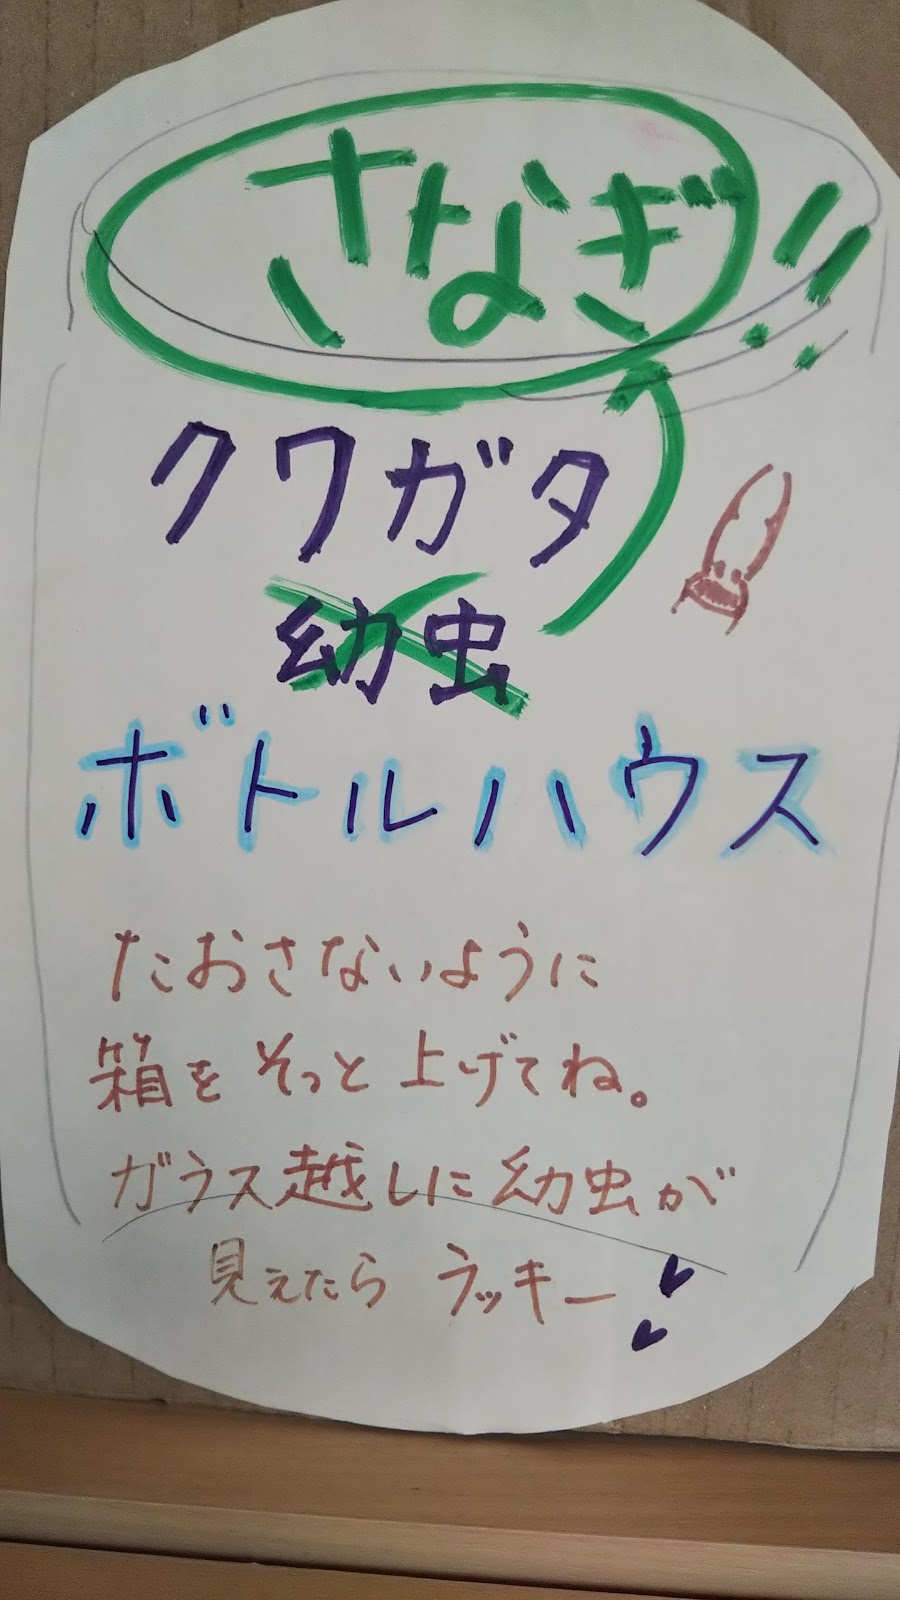 さなぎ!!
クワガタ
幼虫
ボトルハウス
たおさないように
箱をそっと上げてね。
ガラス越しに幼虫が
見えたら ラッキー